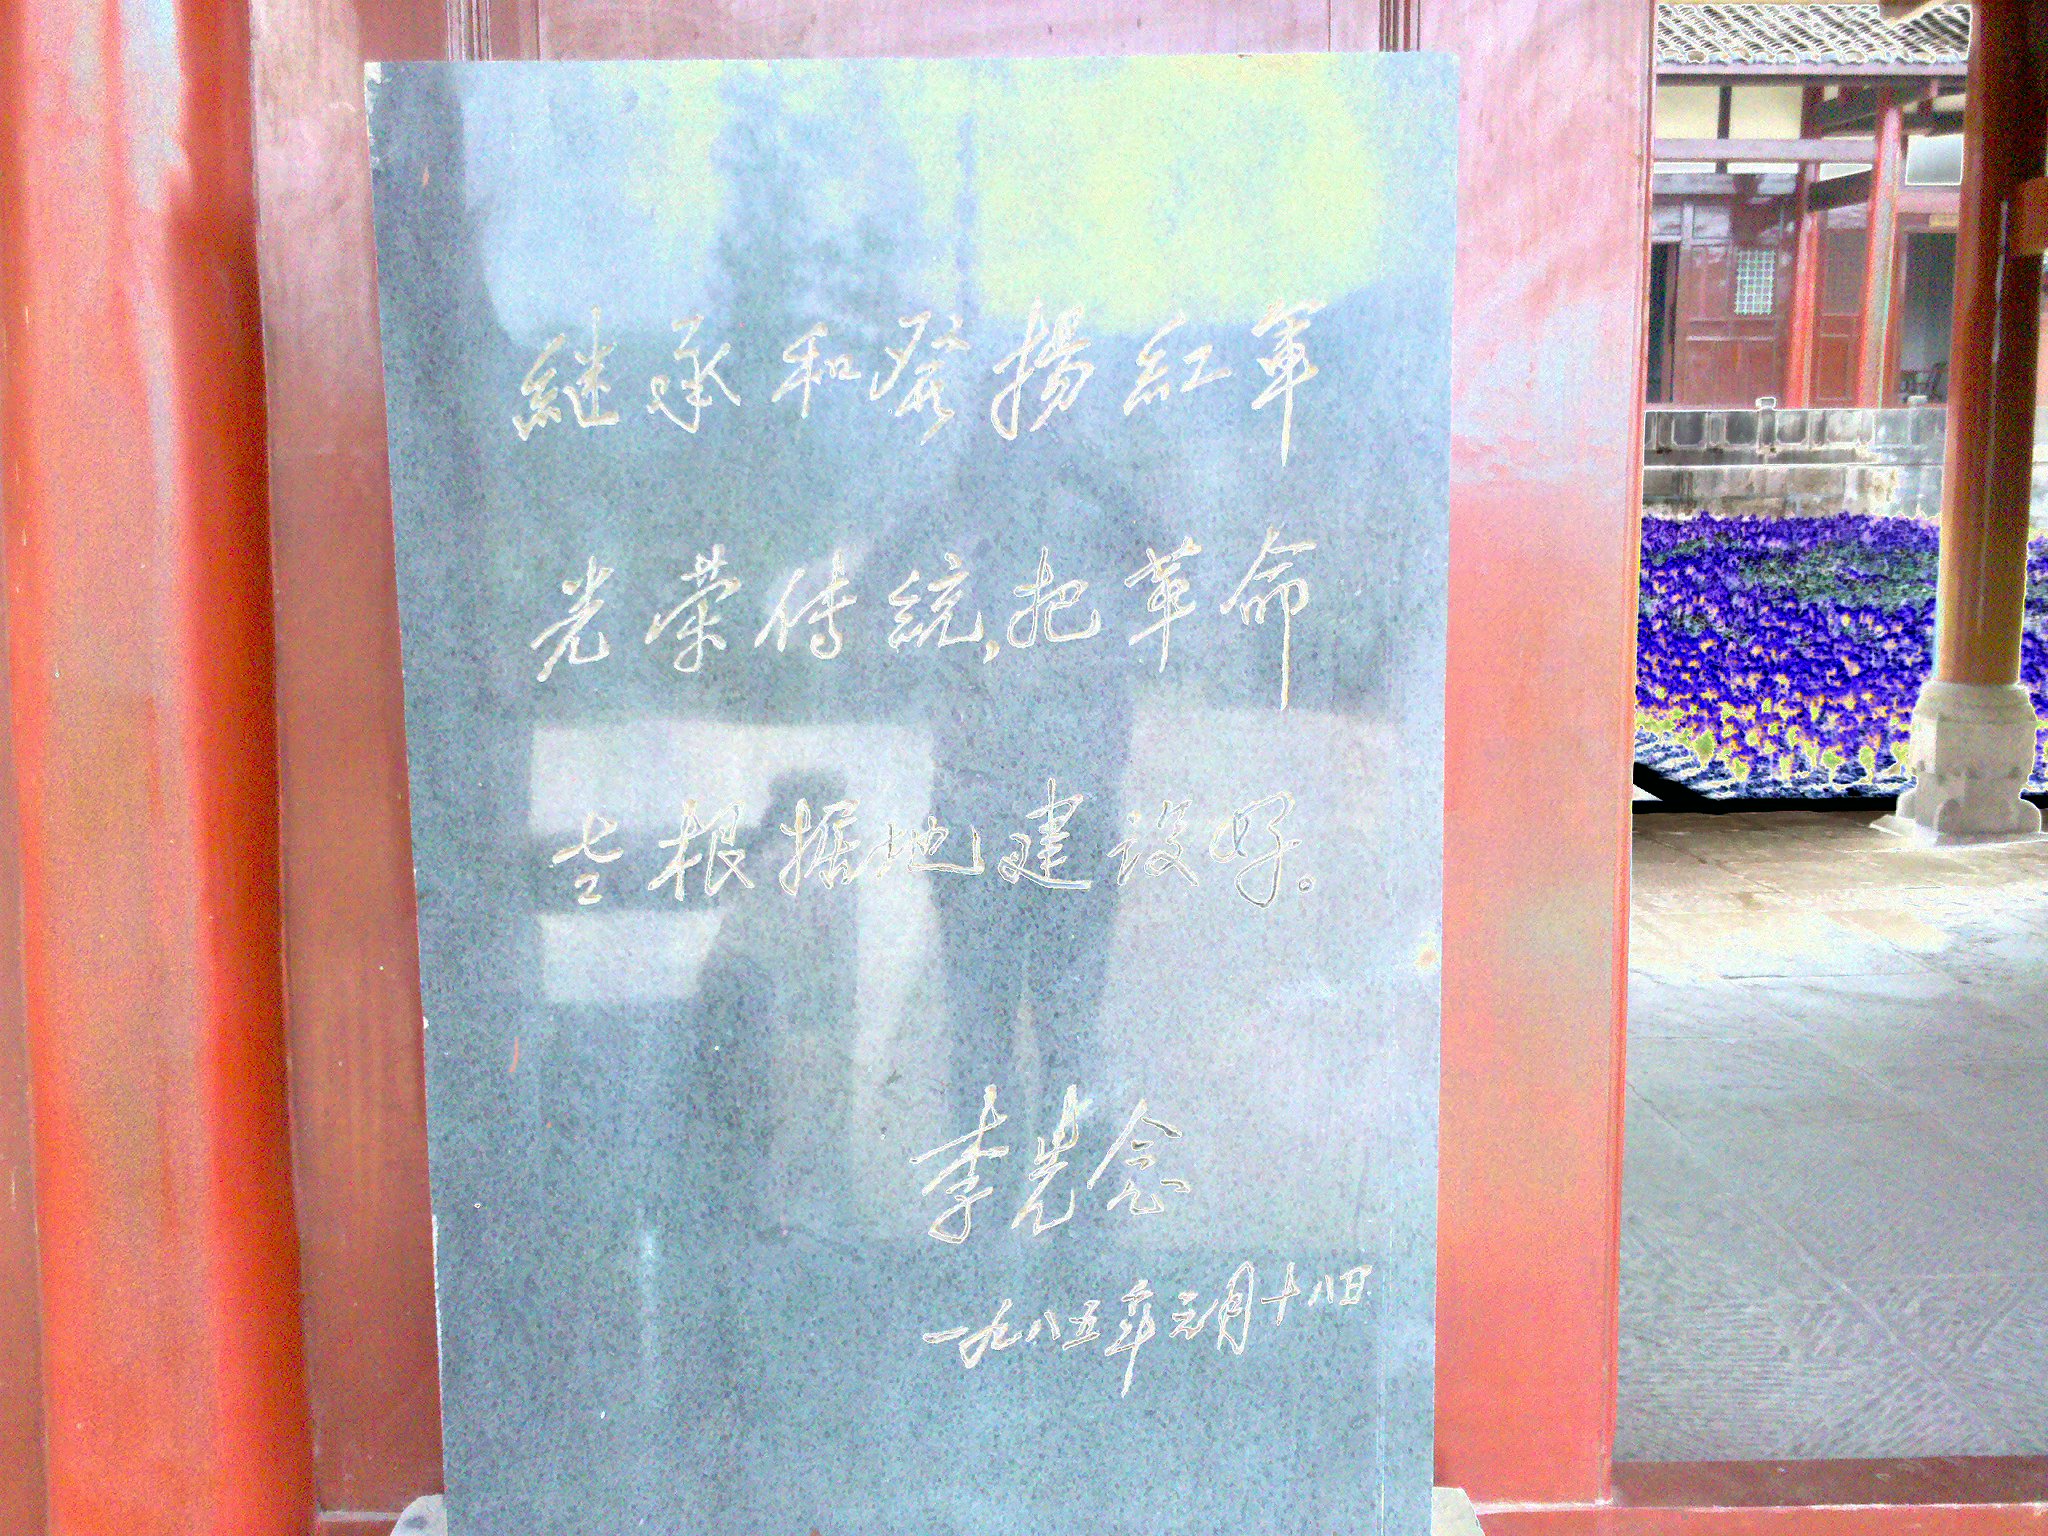 継承和發揚紅軍
光荣傳統,把革命
老根据地建设好。
李先念
一九八五年元月十八日